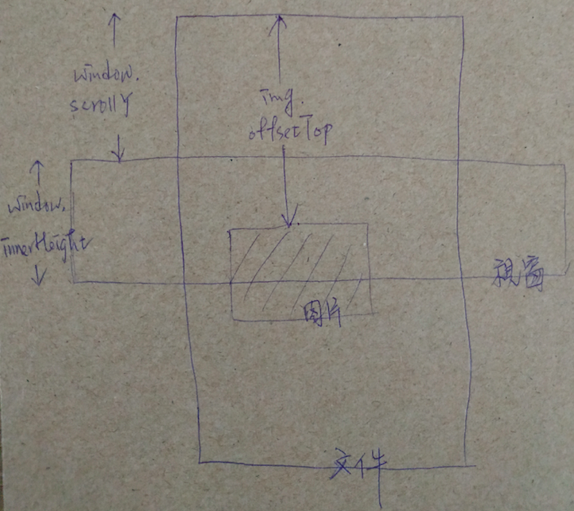 window.
scrollY
img.
offsetTop
window.
innerHeight
視窗
图片
文件